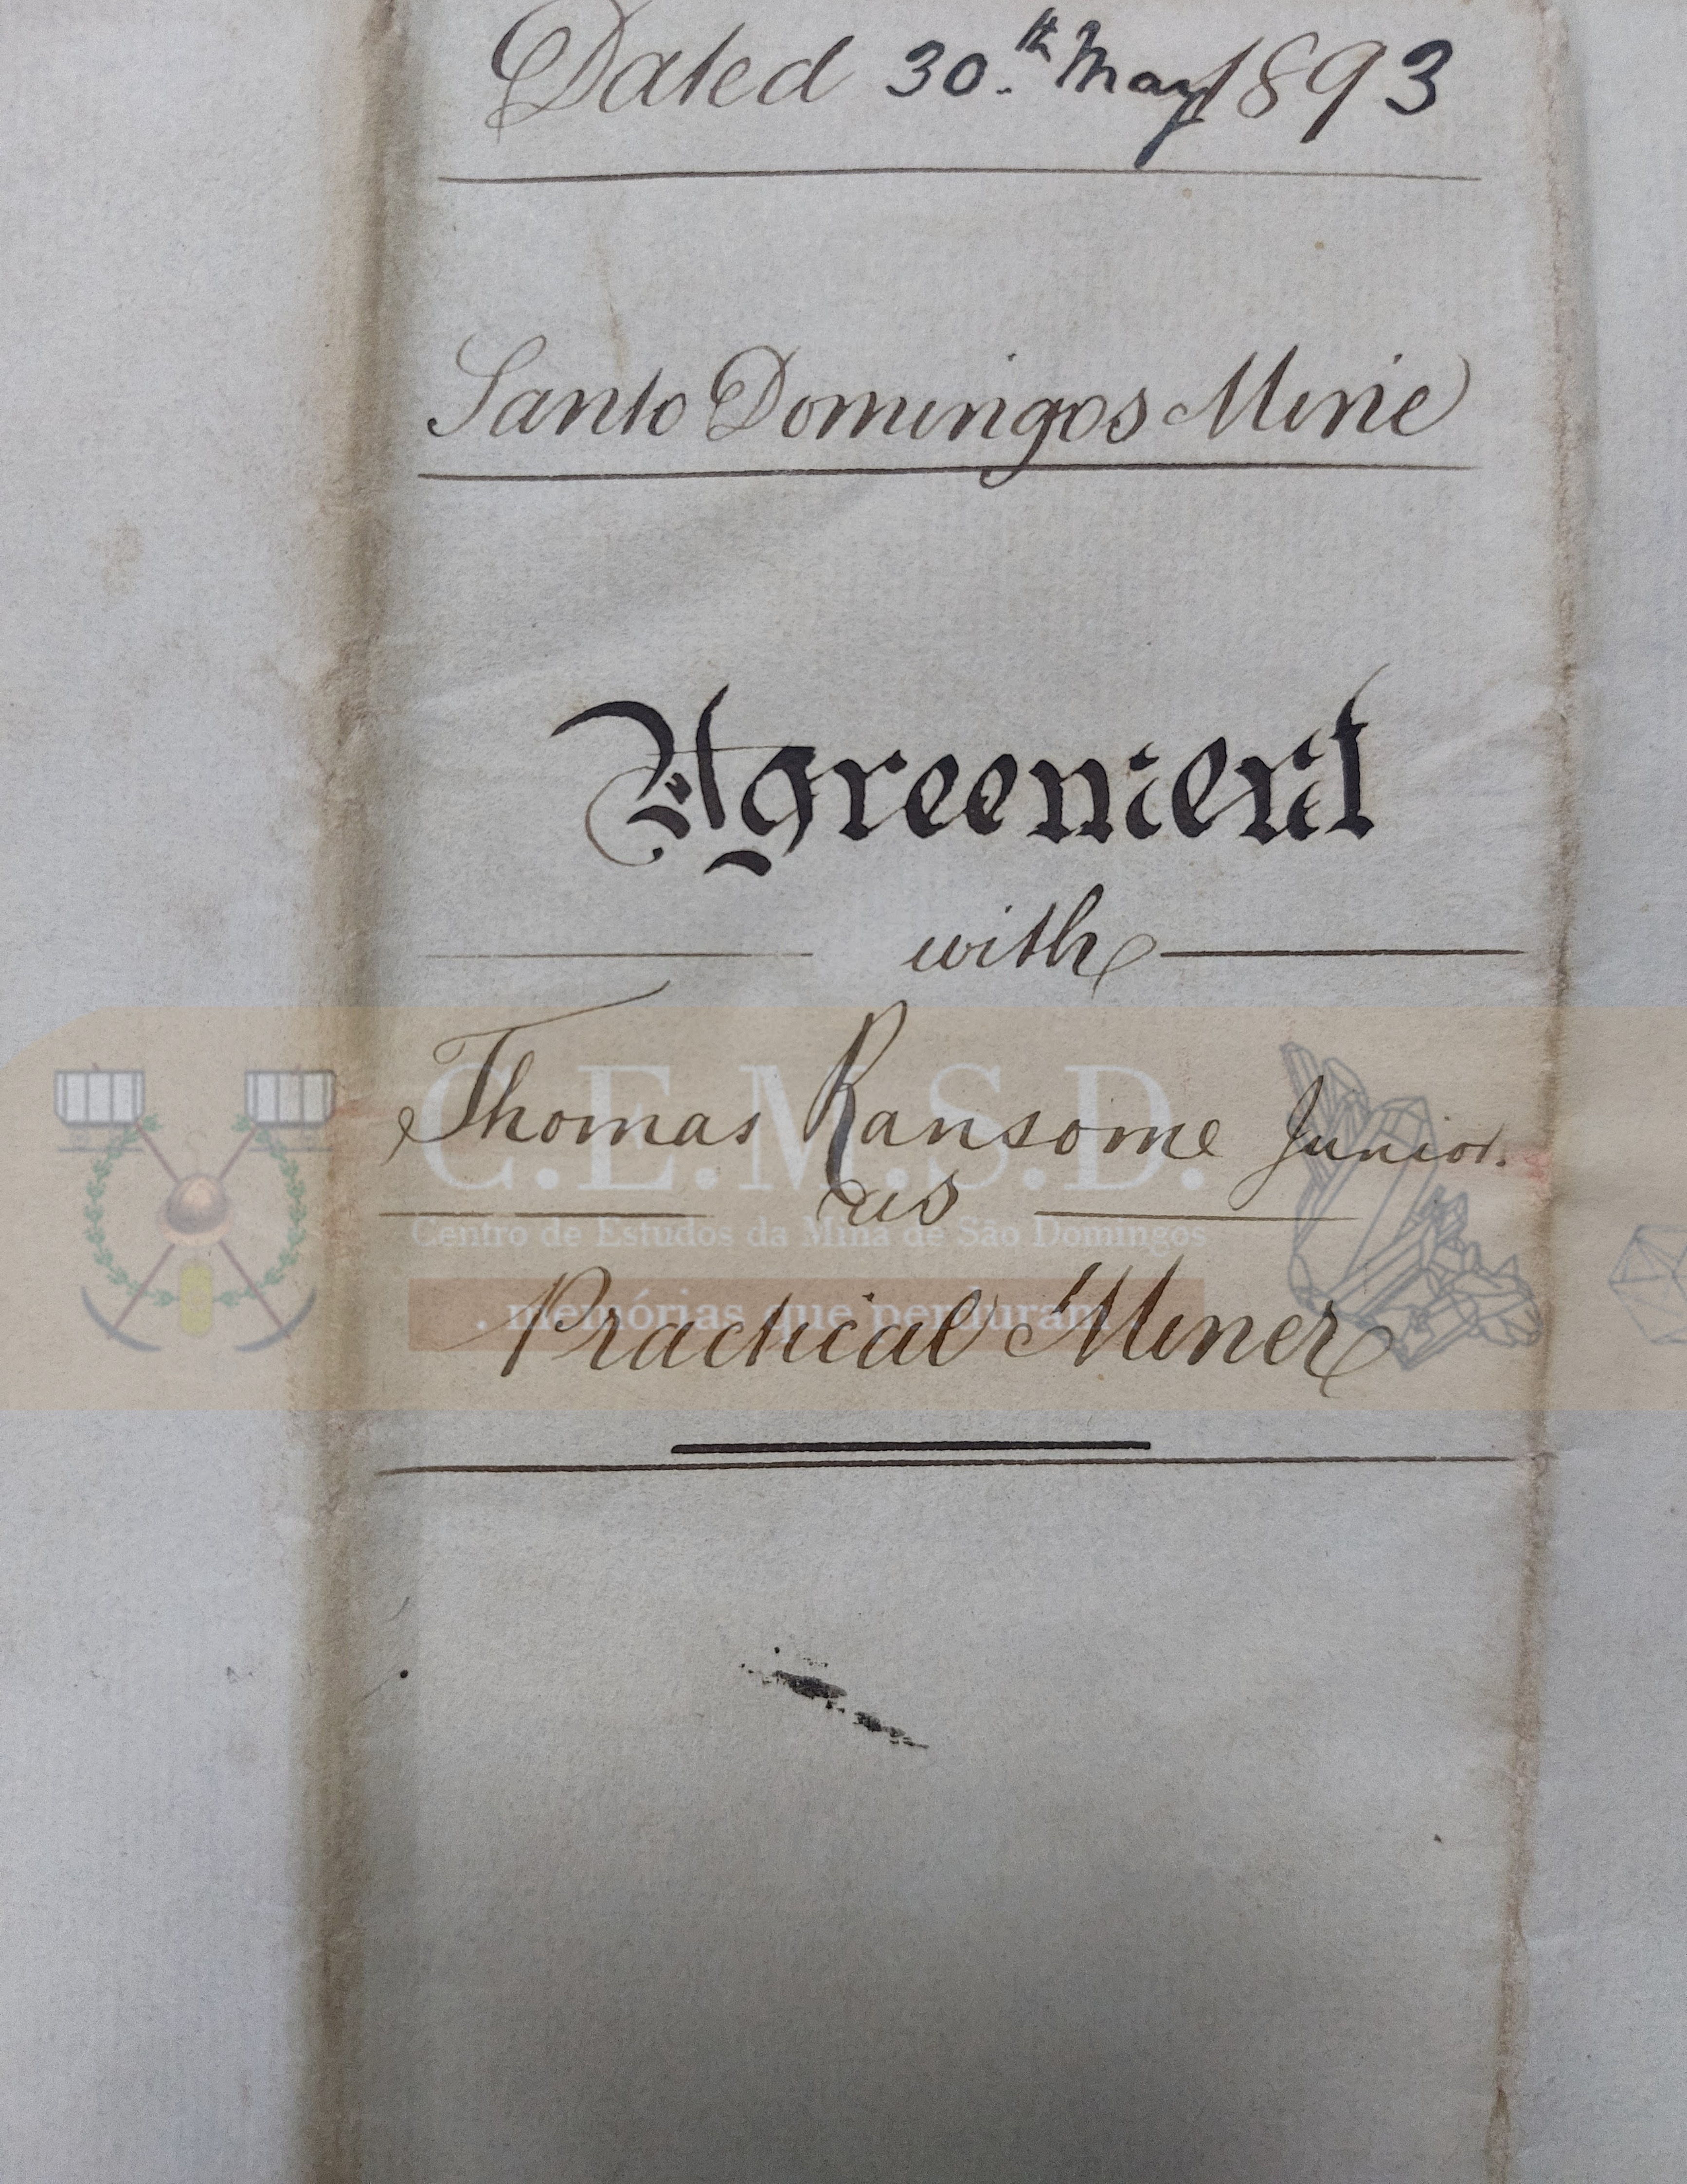 Dated 30th May 1893
Santo Domingos Mine
Agreement
with
Thomas Ransome Junior.
as
Practical Miner
C.E.M.S.D.
Centro de Estudos da Mina de São Domingos
. memórias que perduram